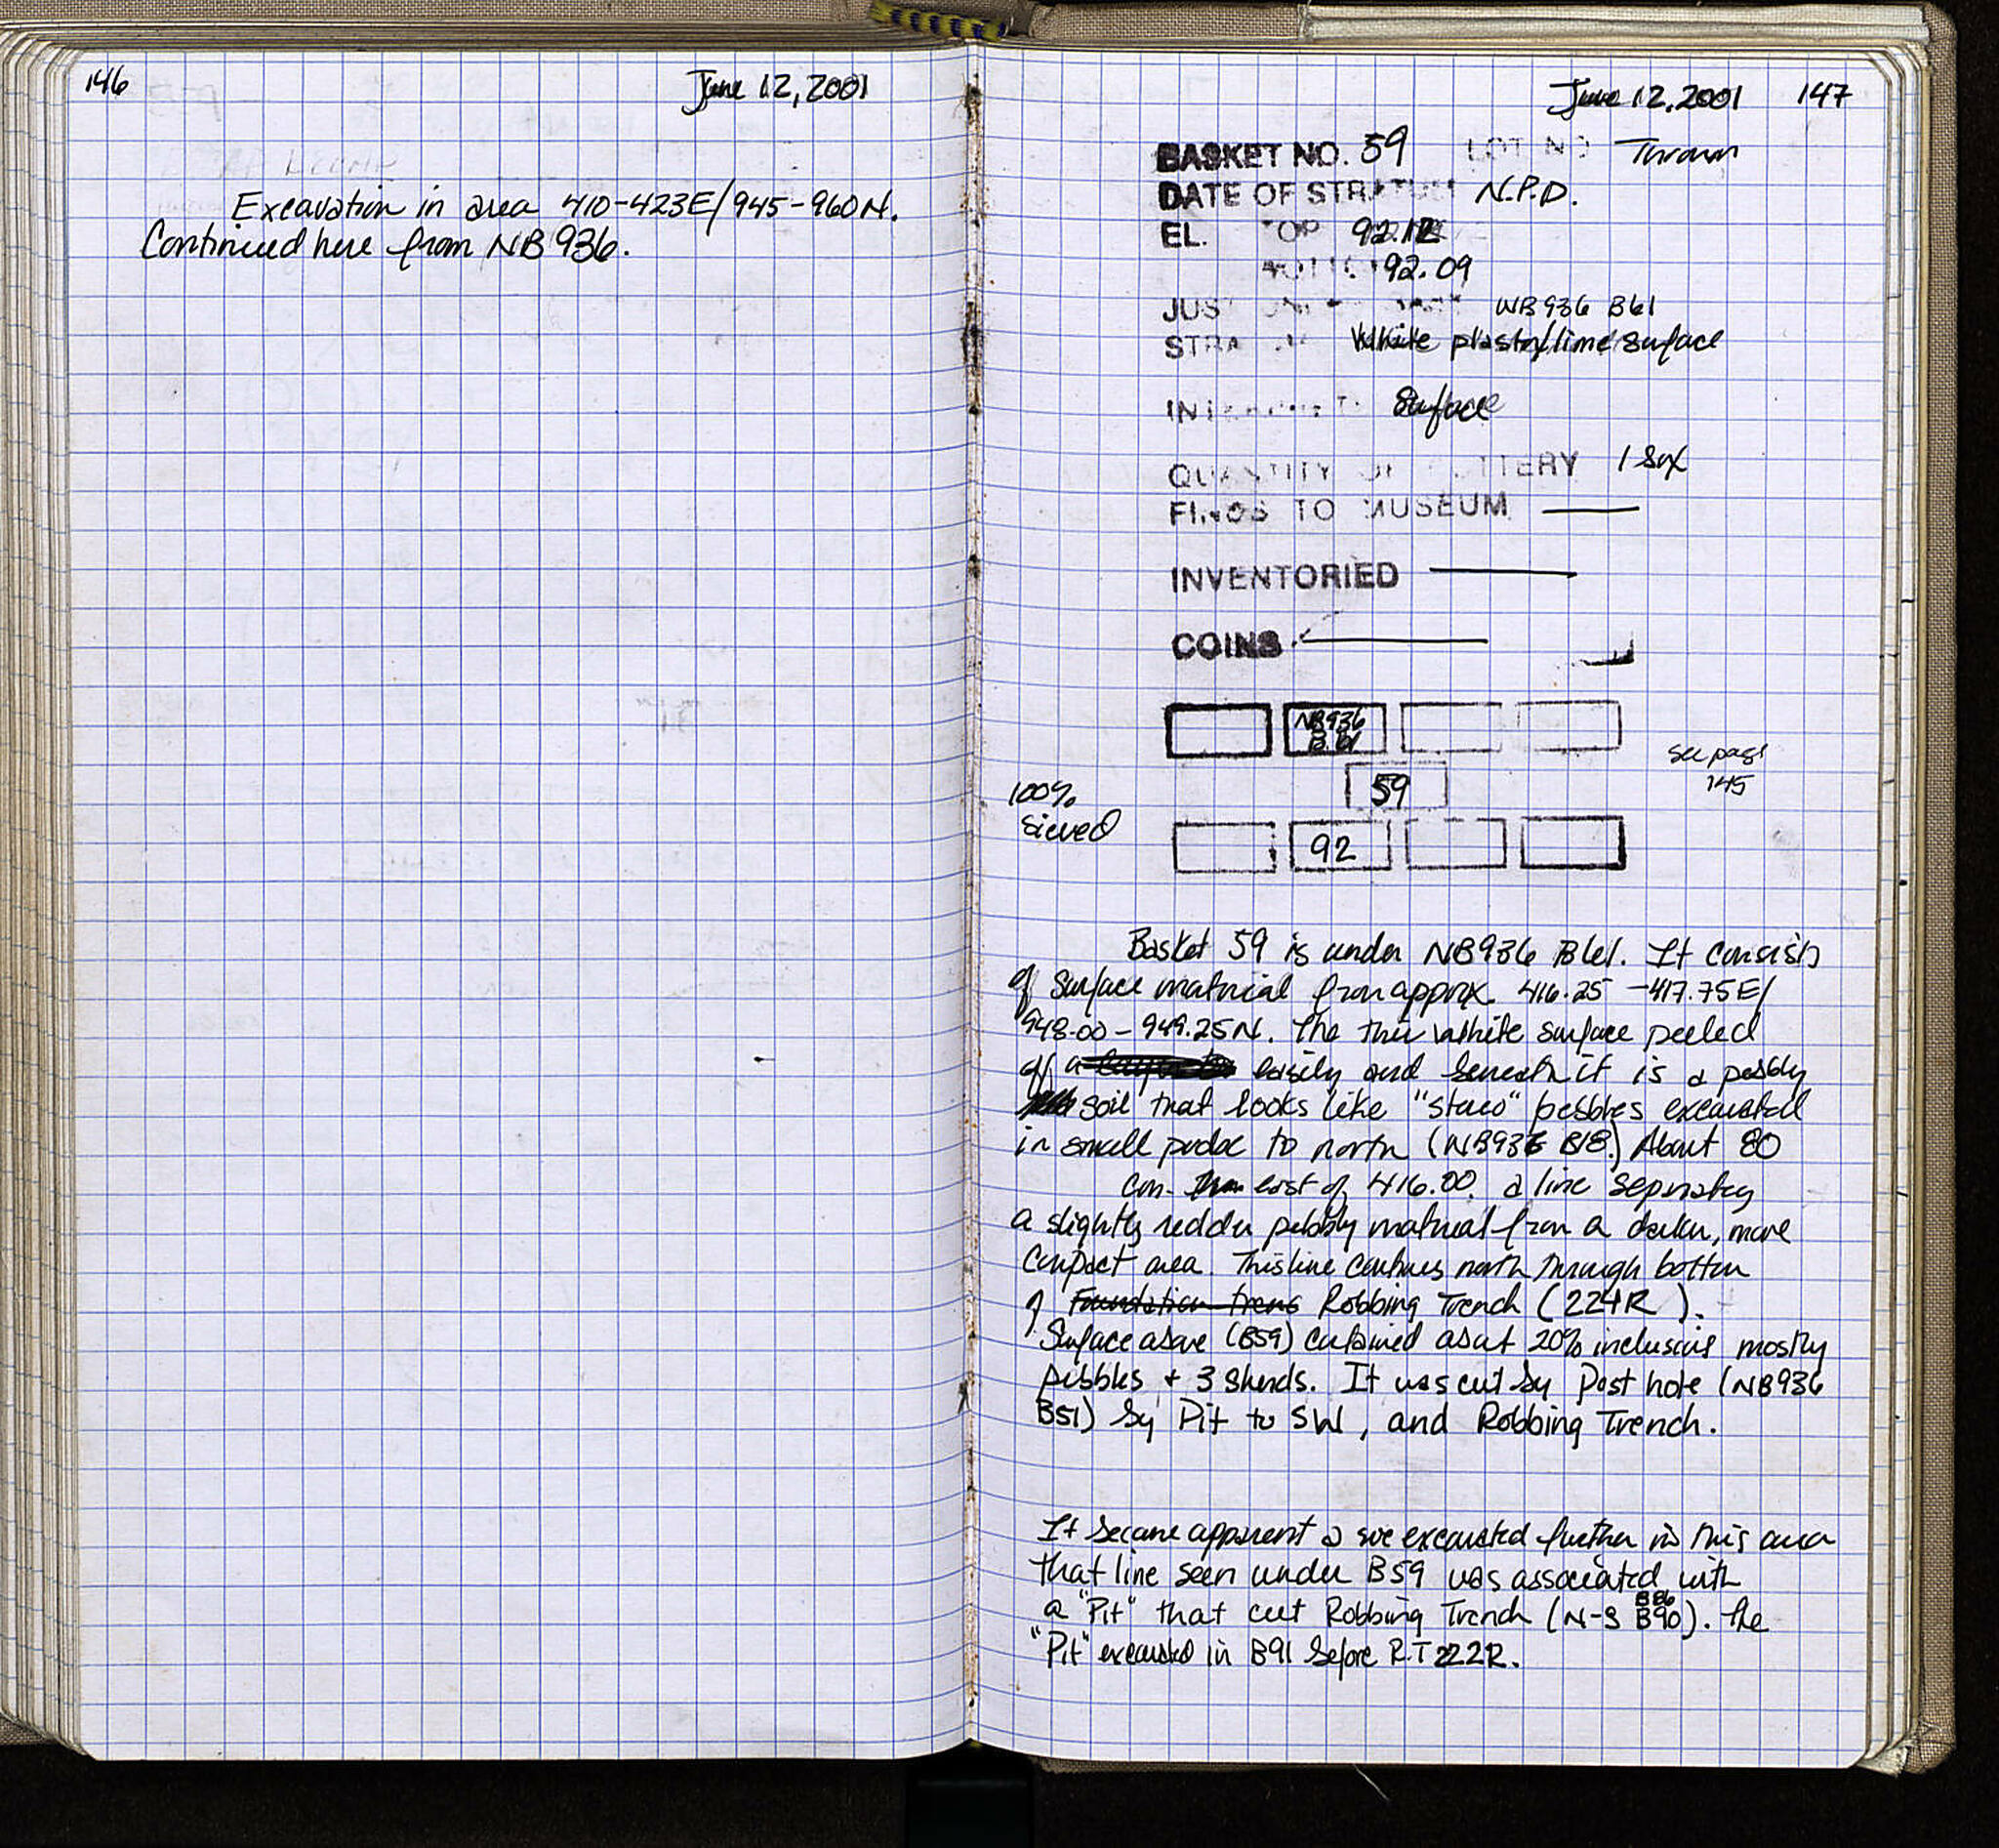 146 June 12, 2001
Excavation in area 410-423E/945-960N.
Continued here from NB 936.
June 12, 2001 147
BASKET NO. 59 LOT NO Thrown
DATE OF STRATUM N.P.D.
EL. TOP 92.12
92.09
JUST UNDER NB936 B61
STRATUM White plaster/lime surface
Surface
QUANTITY OF POTTERY 1 Box
FINDS TO MUSEUM —
INVENTORIED —
COINS —
NB936
B. 61
see page
145
59
100%
sieved
92
Basket 59 is under NB936 B61. It consists
of surface material from approx. 416.25 - 417.75E/
948.00 - 949.25N. The thin white surface peeled
off easily and beneath it is a pebbly
soil that looks like "staco" pebbles excavated
in small probe to north (NB936 B18.) About 80
cm. east of 416.00, a line separates
a slightly redder pebbly material from a darker, more
compact area. This line continues north through bottom
of Foundation trens Robbing Trench (224R).
Surface above (B59) contained about 20% inclusions mostly
pebbles + 3 sherds. It was cut by Post hole (NB936
B51) by Pit to SW, and Robbing Trench.
It became apparent as we excavated further in this area
that line seen under B59 was associated with
a "Pit" that cut Robbing Trench (N-S B86 B90). The
"Pit" excavated in B91 before R.T 222R.